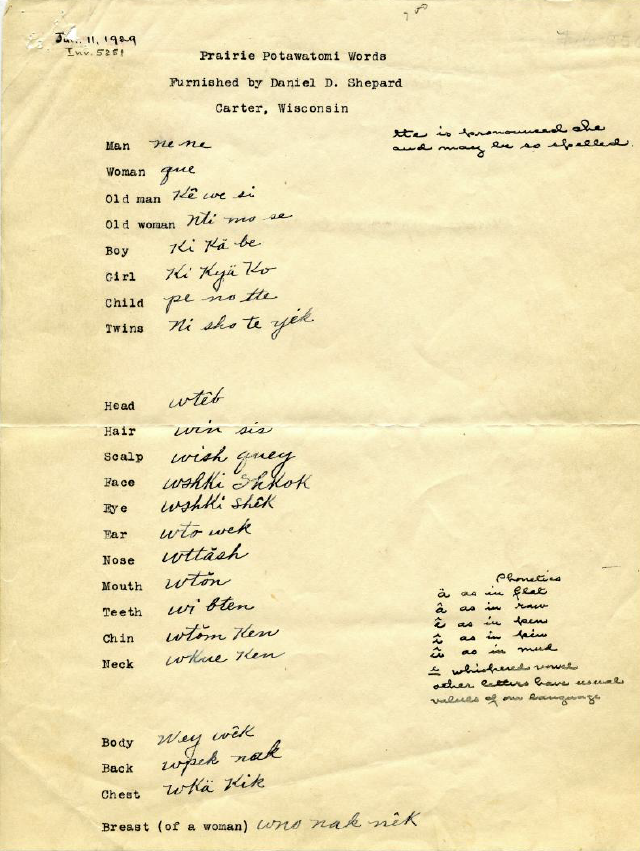 Jan. 11, 1929
Inv. 5251
Prairie Potawatomi Words
Furnished by Daniel D. Shepard
Carter, Wisconsin
tte is pronounced che
and may be so spelled.
Man ne ne
Woman que
Old man Kê we si
Old woman Nti mo se
Boy Ki Kä be
Girl Ki Kyä Ko
Child pe no tte
Twins Ni sho te yêk
Head wtêb
Hair win sis
Scalp wish quey
Face wshki shkok
Eye wshki shêk
Ear wto wek
Nose wttâsh
Mouth wtôn
Teeth wi bten
Chin wtôm Ken
Neck wkue Ken
Phonetics
ä as in flat
â as in raw
ê as in pen
î as in pin
û as in mud
e whispered vowel
other letters have usual
values of our language
Body Wey wêk
Back wpek nak
Chest wKä Kik
Breast (of a woman) wno nak nêk